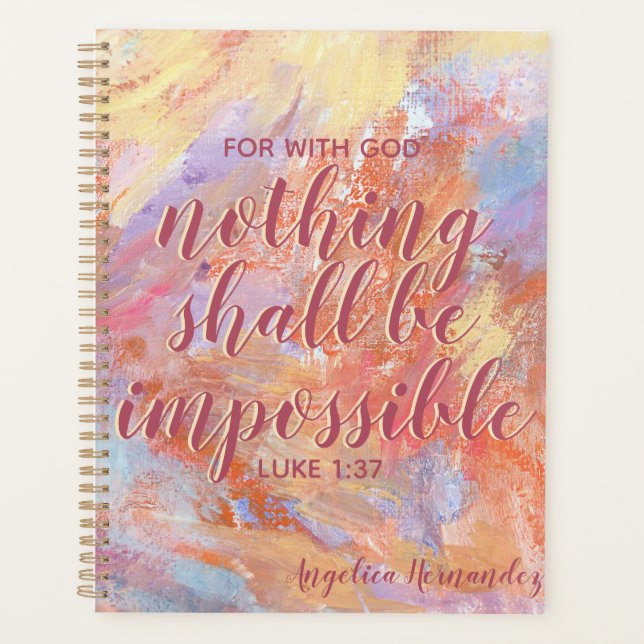 FOR WITH GOD
nothing
shall be
impossible
LUKE 1:37
Angelica Hernandez